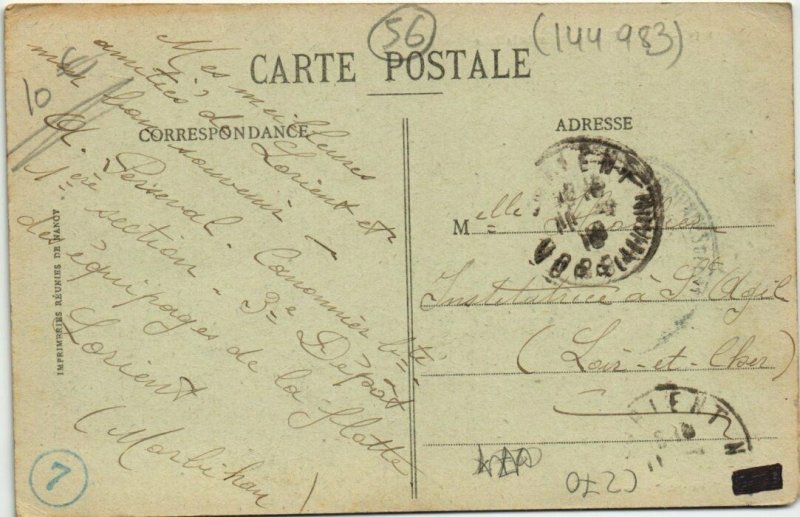 56
(144 983)
10
CARTE POSTALE
CORRESPONDANCE
ADRESSE
Mes meilleures
amitiés de Lorient et
mon bon souvenir –
A. Perseval. Canonnier bté
1ère section - 3e Dépôt
des équipages de la flotte
Lorient
(Morbihan)
IMPRIMERIES RÉUNIES DE NANCY
7
Melle
Institutrice à St Agil
(Loir-et-Cher)
LORIENT
MORBIHAN
C270